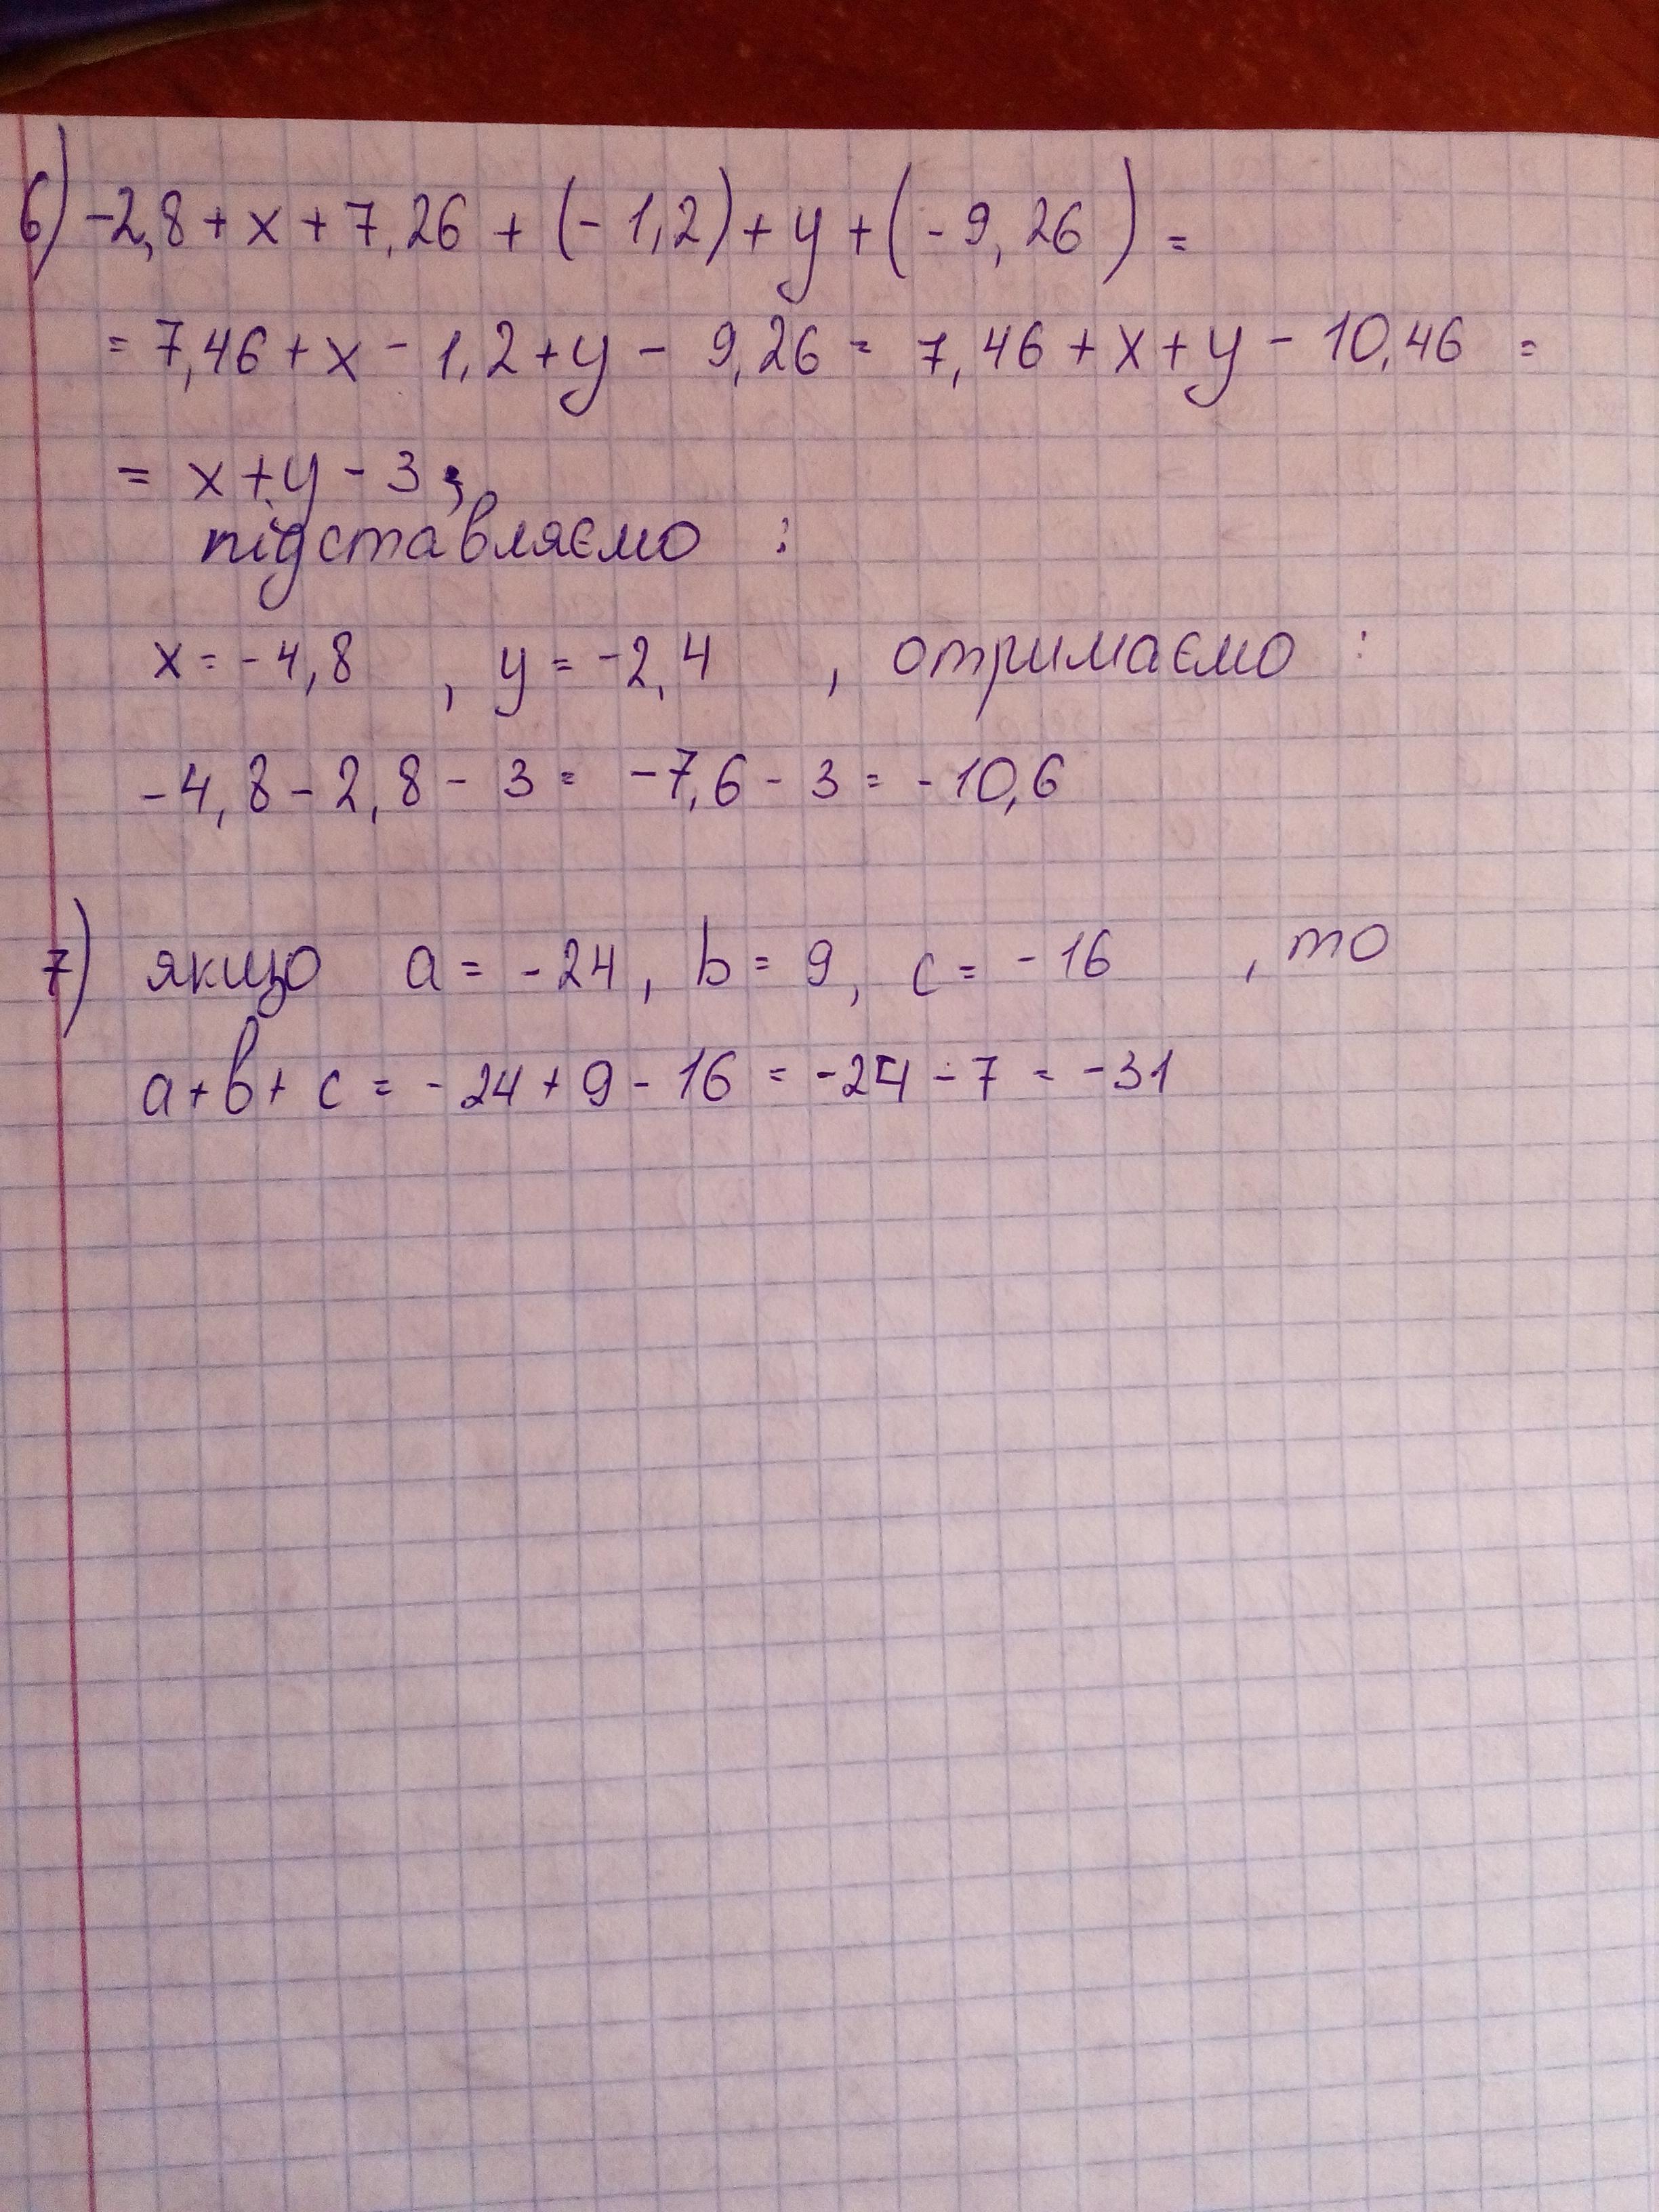 6) -2,8 + x + 7,26 + (-1,2) + y + (-9,26) =
= 7,46 + x - 1,2 + y - 9,26 = 7,46 + x + y - 10,46 =
= x + y - 3;
підставляємо :
x = -4,8 , y = -2,4 , отримаємо :
-4,8 - 2,8 - 3 = -7,6 - 3 = -10,6
7) якщо a = -24, b = 9, c = -16 , то
a + b + c = -24 + 9 - 16 = -24 - 7 = -31